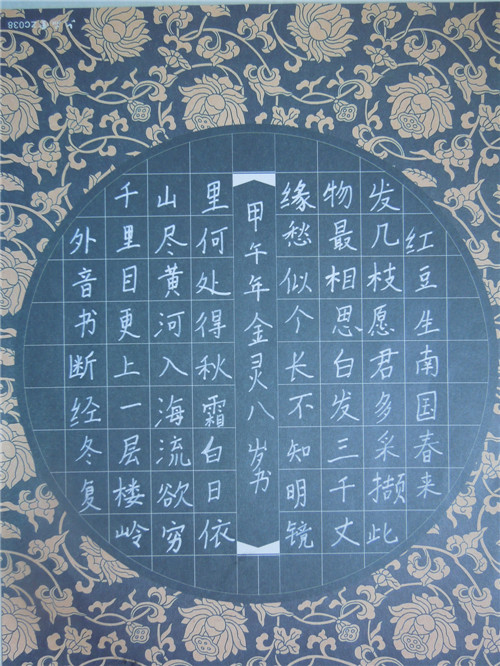 红豆生南国春来
发几枝愿君多采撷此
物最相思白发三千丈
缘愁似个长不知明镜
甲午年金灵八岁书
里何处得秋霜白日依
山尽黄河入海流欲穷
千里目更上一层楼岭
外音书断经冬复
ZC038